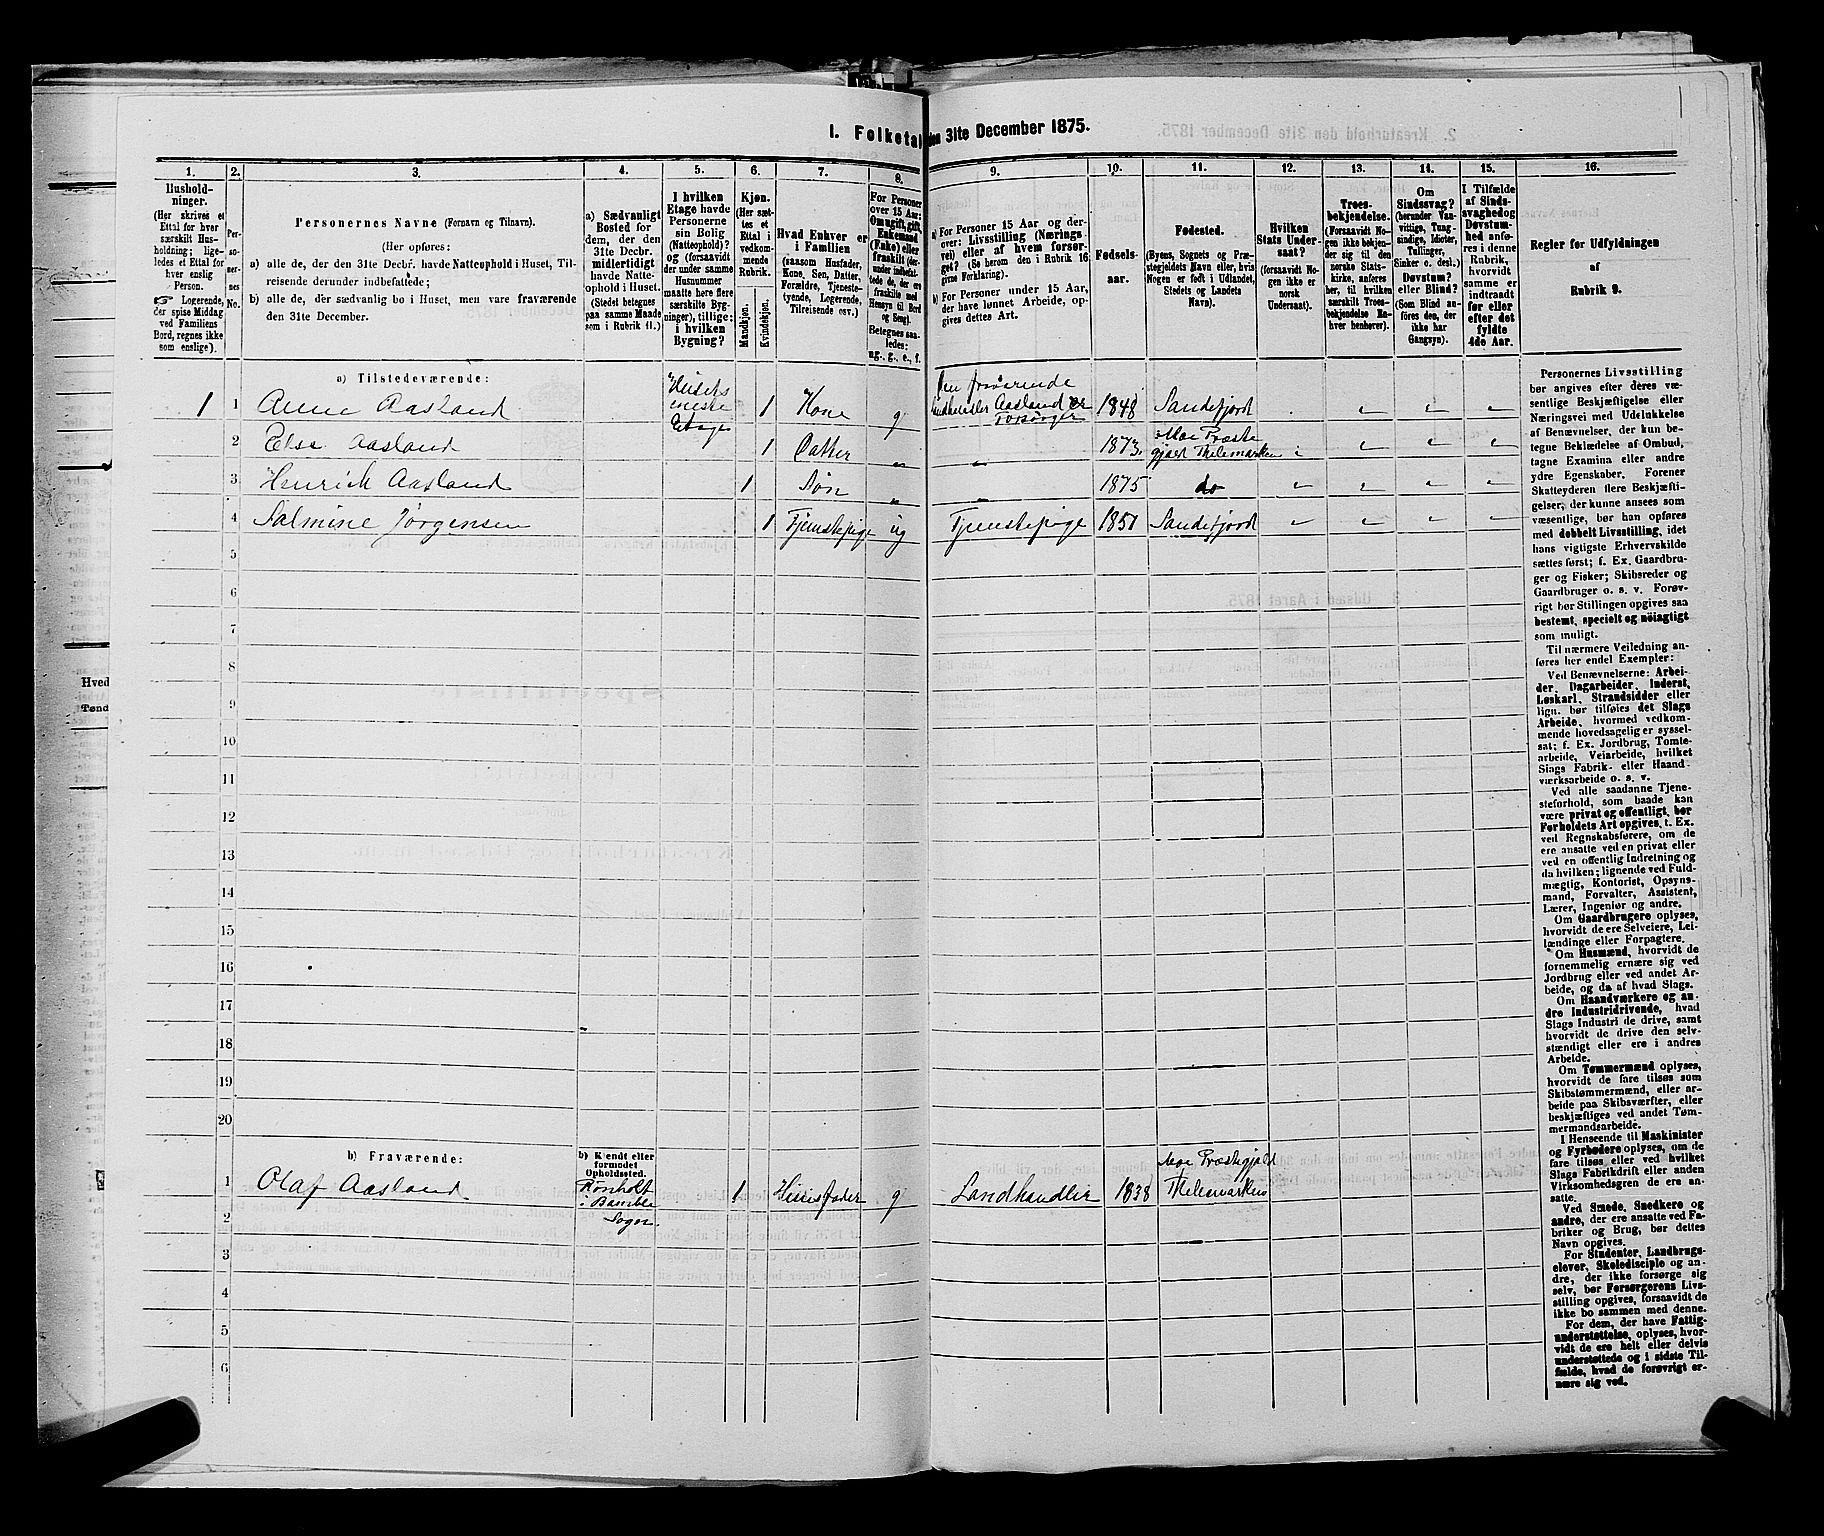 I. Folketal den 31te December 1875.
1. 2. 3. 4. 5. 6. 7. 8. 9. 10. 11. 12. 13. 14. 15. 16.
Hushold-
ninger.
(Her skrives et
Ettal for hver
særskilt Hus-
holdning; lige-
ledes et Ettal for
hver enslig
Person.
☞ Logerende,
der spise Middag
ved Familiens
Bord, regnes ikke
som enslige).
Per-
so-
ner-
nes
No.
Personernes Navne (Fornavn og Tilnavn).
(Her opføres:
a) alle de, der den 31te Decbr. havde Natteophold i Huset, Til-
reisende derunder indbefattede;
b) alle de, der sædvanlig bo i Huset, men vare fraværende
den 31te December.
a) Sædvanligt
Bosted for
dem, der den
31te Decbr.
midlertidigt
havde Natte-
ophold i Huset.
(Stedet betegnes
paa samme Maade
som i Rubrik 11.)
I hvilken
Etage havde
Personerne
sin Bolig
(Natteophold)?
og (forsaavidt
der under samme
Husnummer
maatte høre flere
særskilte Byg-
ninger), tillige:
i hvilken
Bygning?
Kjøn.
(Her sæt-
tes et
Ettal i
vedkom-
mende
Rubrik.
Mandkjøn.
Kvindekjøn.
Hvad Enhver er
i Familien
(saasom Husfader,
Kone, Søn, Datter,
Forældre, Tjeneste-
tyende, Logerende,
Tilreisende osv.)
For Personer
over 15 Aar:
Om ugift, gift,
Enkemand
(Enke) eller
fraskilt (der-
under indbefat-
tede de, der ere
fraskilte med
Hensyn til Bord
og Seng).
Betegnes saa-
ledes:
ug., g., e., f.
a) For Personer 15 Aar og der-
over: Livsstilling (Nærings-
vei) eller af hvem forsør-
get? (Se herom den i Rubrik 16
givne Forklaring).
b) For Personer under 15 Aar,
der have lønnet Arbeide, op-
gives dettes Art.
Fødsels-
aar.
Fødested.
(Byens, Sognets og Præ-
stegjeldets Navn eller, hvis
Nogen er født i Udlandet,
Stedets og Landets
Navn).
Hvilken
Stats Under-
saat?
(forsaavidt No-
gen ikke er
norsk
Undersaat).
Troes-
bekjendelse.
(Forsaavidt No-
gen ikke bekjen-
der sig til den
norske Stats-
kirke, anføres
her, til hvilken
særskilt Troes-
bekjendelse En-
hver henhører).
Om
Sindssvag?
(herunder Van-
vittige, Tung-
sindige, Idioter,
Tullinger,
Sinker o. desl.)
Døvstum?
eller Blind?
(Som Blind an-
føres den, der
ikke har
Gangsyn).
I Tilfælde
af Sinds-
svaghed og
Døvstum-
hed anfø-
res i denne
Rubrik,
hvorvidt
samme er
indtraadt
før eller
efter det
fyldte
4de Aar.
Regler for Udfyldningen
af
Rubrik 9.
a) Tilstedeværende:
1 1 Anne Aasland Husets eneste Etage 1 Kone g Den fraværende Landhandler Aasland er Forsørger 1848 Sandefjord
2 Else Aasland 1 Datter " " 1873. Moe Præste gjæld Thelemarken
3 Henrich Aasland 1 Søn " " 1875 do
4 Salmine Jørgensen 1 Tjenstepige ug Tjenstepige 1851 Sandefjord
5
6
7
8
9
10
11
12
13
14
15
16
17
18
19
20
b) Fraværende:
b) Kjendt eller
formodet
Opholdssted.
1 Olaf Aasland Rönholt i Bamble Sogn. 1 Huusfader g Landhandler 1838 Moe Præstegjæld Thelemarken
2
3
4
5
6
Personernes Livsstilling
bør angives efter deres væ-
sentlige Beskjæftigelse eller
Næringsvei med Udelukkelse
af Benævnelser, der kun be-
tegne Beklædelse af Ombud,
tagne Examina eller andre
ydre Egenskaber. Forener
Skatteyderen flere Beskjæfti-
gelser, der kunne ansees som
væsentlige, bør han opføres
med dobbelt Livsstilling, idet
hans vigtigste Erhvervskilde
sættes først; f. Ex. Gaardbru-
ger og Fisker; Skibsreder og
Gaardbruger o. s. v. Forøv-
rigt bør Stillingen opgives saa
bestemt, specielt og nøiagtigt
som muligt.
Til nærmere Veiledning an-
føres her endel Exempler:
Ved Benævnelserne: Arbei-
der, Dagarbeider, Inderst,
Løskarl, Strandsidder eller
lign. bør tilføies det Slags
Arbeide, hvormed vedkom-
mende hovedsagelig er syssel-
sat; f. Ex. Jordbrug, Tomte-
arbeide, Veiarbeide, hvilket
Slags Fabrik- eller Haand-
værksarbeide o. s. v.
Ved alle saadanne Tjene-
steforhold, som baade kan
være privat og offentligt, bør
Forholdets Art opgives, t. Ex.
ved Regnskabsførere, om de
ere ansatte ved en privat eller
ved en offentlig Indretning og
da hvilken; lignende ved Fuld-
mægtig, Kontorist, Opsyns-
mand, Forvalter, Assistent,
Lærer, Ingeniør og andre.
Om Gaardbrugere oplyses,
hvorvidt de ere Selveiere, Lei-
lændinge eller Forpagtere.
Om Husmænd, hvorvidt de
fornemmelig ernære sig ved
Jordbrug eller ved andet Ar-
beide, og da af hvad Slags.
Om Haandværkere og an-
dre Industridrivende, hvad
Slags Industri de drive, samt
hvorvidt de drive den selv-
stændigt eller ere i andres
Arbeide.
Om Tømmermænd oplyses,
hvorvidt de fare tilsøs som
Skibstømmermænd, eller ar-
beide paa Skibsværfter, eller
beskjæftiges ved andet Tøm-
mermandsarbeide.
I Henseende til Maskinister
og Fyrbødere oplyses, om de
fare tilsøs eller ved hvilket
Slags Fabrikdrift eller anden
Virksomhedsgren de ere an-
satte.
Ved Smede, Snedkere og
andre, der ere ansatte ved Fa-
briker og Brug, bør dettes
Navn opgives.
For Studenter, Landbrugs-
elever, Skoledisciple og an-
dre, der ikke forsørge sig
selv, bør Forsørgerens Livs-
stilling opgives, forsaavidt de
ikke bo sammen med denne.
For dem, der have Fattig-
understøttelse, oplyses, hvor-
vidt de ere helt eller delvis
understøttede og i sidste Til-
fælde, hvad de forøvrigt er-
nære sig ved.
Hved
Tønd